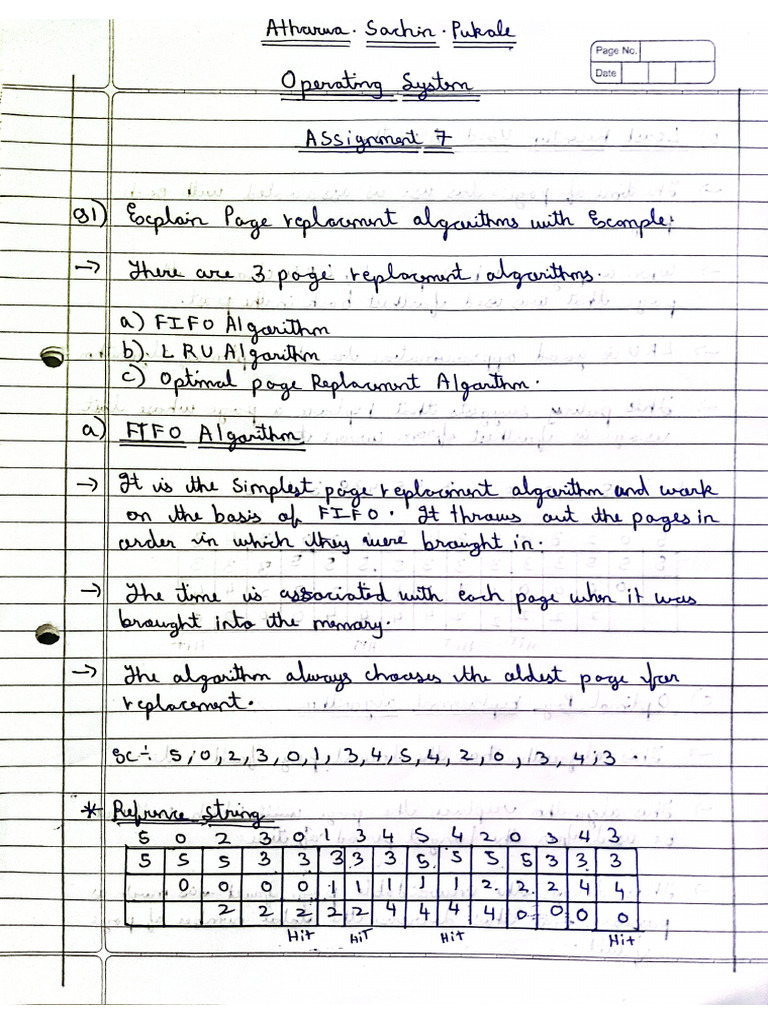 Atharva. Sachin. Pukale
Page No.
Date
Operating System
Assignment 7
Q1) Explain Page replacment algorithms with Example:
→ There are 3 page replacement algorithms.
a) FIFO Algorithm
b) LRU Algorithm
c) Optimal page Replacment Algorithm.
a) FIFO Algorithm
→ It is the simplest page replacment algorithm and work
on the basis of FIFO. It throws out the pages in
order in which they were brought in.
→ The time is associated with each page when it was
brought into the memory.
→ The algorithm always chooses the oldest page for
replacement.
5, 0, 2, 3, 0, 1, 3, 4, 5, 4, 2, 0, 3, 4, 3
* Refrence String
5 0 2 3 0 1 3 4 5 4 2 0 3 4 3
5 5 5 3 3 3 3 3 5 5 5 5 3 3 3
0 0 0 0 1 1 1 1 1 2 2 2 4 4
2 2 2 2 2 4 4 4 4 0 0 0 0
Hit HiT Hit Hit